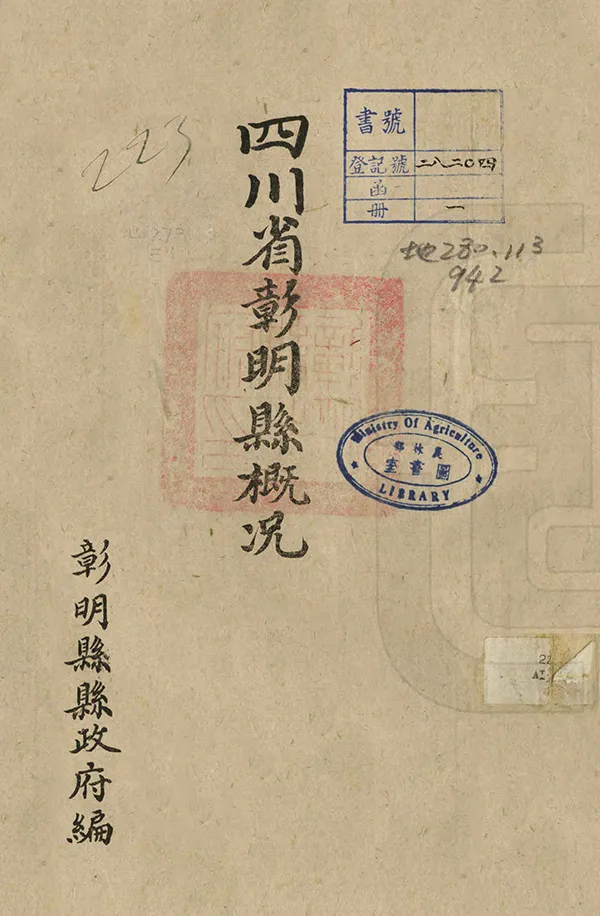 書號
登記號 二八二〇四
函
冊 一
地280.113
942
223
四川省彰明縣概况
Ministry Of Agriculture
農林部
圖書室
LIBRARY
彰明縣縣政府編
22
AI